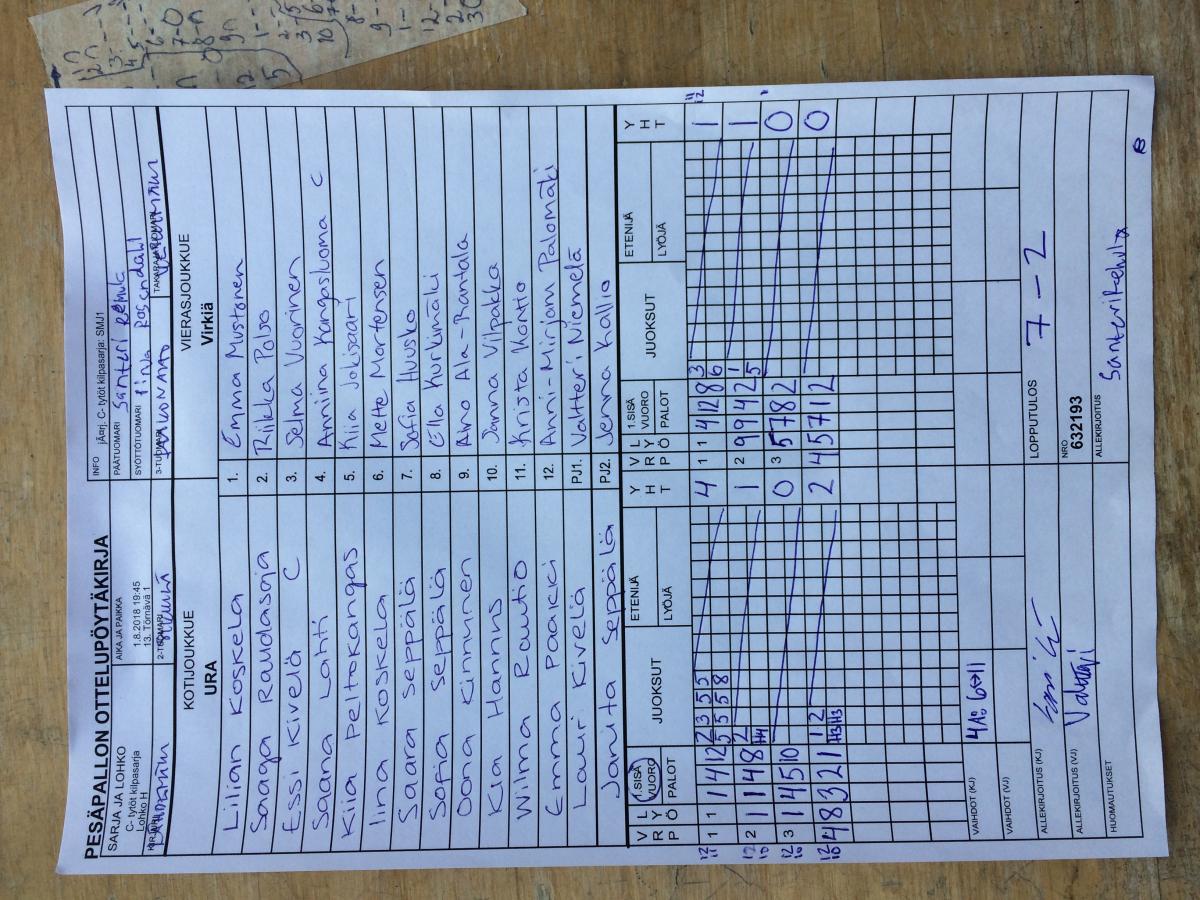 PESÄPALLON OTTELUPÖYTÄKIRJA
SARJA JA LOHKO
C- tytöt kilpasarja
Lohko H
AIKA JA PAIKKA
1.8.2018 19:45
13. Törnävä 1
INFO jÃ¤rj. C- tytöt kilpasarja: SMJ1
PÄÄTUOMARI Santeri
SYÖTTÖTUOMARI Iina Rosendahl
2-TUOMARI
3-TUOMARI
KOTIJOUKKUE
URA
VIERASJOUKKUE
Virkiä
Lilian Koskela 1. Emma Mustonen
Saaga Raudasoja 2. Riikka Palvo
Essi Kivelä C 3. Selma Vuorinen
Saana Lahti 4. Anniina Kangasluoma C
Kiia Peltokangas 5. Kiia Jokisaari
Iina Koskela 6. Mette Mortensen
Saara Seppälä 7. Sofia Huusko
Sofia Seppälä 8. Ella Kurkimäki
Oona Kinnunen 9. Aino Ala-Rantala
Kia Hannus 10. Janna Vilpakka
Wilma Rautio 11. Krista Kontio
Emma Paakki 12. Anni-Mirjami Palomäki
Lauri Kivelä PJ1. Valtteri Niemelä
Janita Seppälä PJ2. Jenna Kallio
V R P L Y Ö 1.SISÄ VUORO PALOT JUOKSUT ETENIJÄ LYÖJÄ Y H T V R P L Y Ö 1.SISÄ VUORO PALOT JUOKSUT ETENIJÄ LYÖJÄ Y H T
12 11 1 1 1 4 12 2 3 5 5 4 1 1 4 12 8 3 1 11 12
5 5 5 8 6
12 10 2 1 1 4 8 2 1 2 9 9 4 2 1 1
H4 5
12 10 3 1 4 5 10 0 3 5 7 8 2 0
12 10 4 8 3 2 1 1 2 2 4 5 7 12 0
H3 H3
VAIHDOT (KJ) 4A: 6↔11
VAIHDOT (VJ)
ALLEKIRJOITUS (KJ)
LOPPUTULOS 7 - 2
ALLEKIRJOITUS (VJ)
NRO
632193
HUOMAUTUKSET
ALLEKIRJOITUS